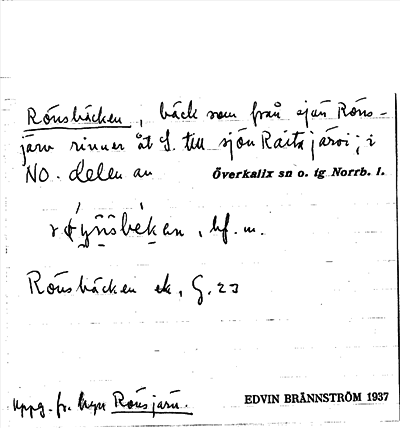 Rönsbäcken, bäck som från sjön Röns-
järv rinner åt S. till sjön Raitajärvi; i
NO. delen av Överkalix sn o. tg Norrb. l.
bf. m.
Rönsbäcken ek. G. 23
Uppg. fr. byn Rönsjärv.
EDVIN BRÄNNSTRÖM 1937